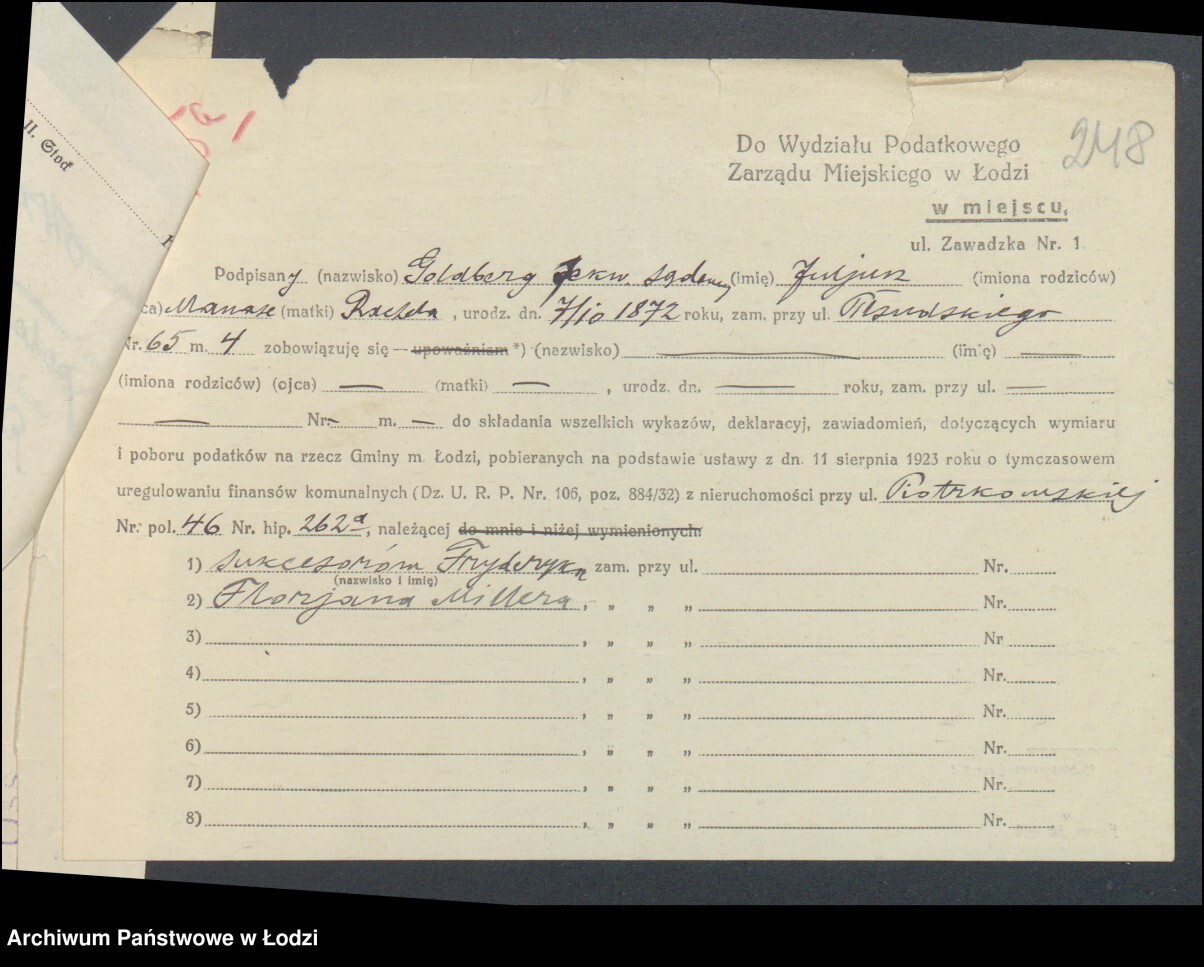 II. Stock
248
Do Wydziału Podatkowego
Zarządu Miejskiego w Łodzi
w miejscu,
ul. Zawadzka Nr. 1
Podpisany (nazwisko) Goldberg sekw. sądowy (imię) Juljusz (imiona rodziców)
ca) Manase (matki) Rachela, urodz. dn. 7/10 1872 roku, zam. przy ul. Piłsudskiego
Nr. 65 m. 4 zobowiązuję się — upoważniam *) (nazwisko) — (imię) —
(imiona rodziców) (ojca) — (matki) — , urodz. dn. — roku, zam. przy ul. —
— Nr. — m. — do składania wszelkich wykazów, deklaracyj, zawiadomień, dotyczących wymiaru
i poboru podatków na rzecz Gminy m. Łodzi, pobieranych na podstawie ustawy z dn. 11 sierpnia 1923 roku o tymczasowem
uregulowaniu finansów komunalnych (Dz. U. R. P. Nr. 106, poz. 884/32) z nieruchomości przy ul. Piotrkowskiej
Nr. pol. 46 Nr. hip. 262a, należącej do mnie i niżej wymienionych:
1) sukcesorów Fryderyka zam. przy ul. Nr.
(nazwisko i imię)
2) Florjana Millera, „ „ „ Nr.
3) , „ „ „ Nr
4) , „ „ „ Nr.
5) , „ „ „ Nr.
6) , „ „ „ Nr.
7) , „ „ „ Nr.
8) , „ „ „ Nr.
Archiwum Państwowe w Łodzi